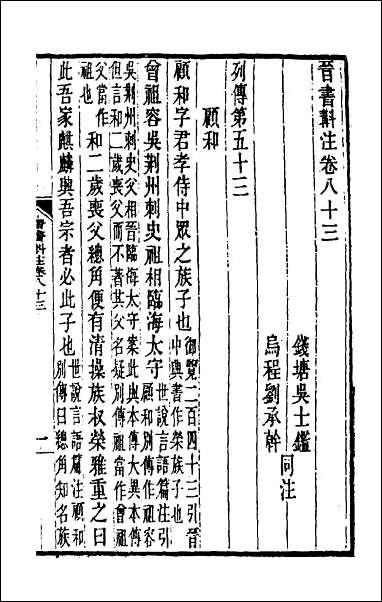 晉書斠注卷八十三
錢塘吳士鑑
烏程劉承幹
同注
列傳第五十三
顧和
顧和字君孝侍中眾之族子也御覽二百四十三引晉
中興書作榮族子也
曾祖容吳荊州刺史祖相臨海太守世說言語篇注引
顧和別傳作祖容
吳荊州刺史父相晉臨海太守案此與本傳大異本傳
但言和二歲喪父而不著其父名疑別傳祖當作曾祖
父當作
祖也
和二歲喪父總角便有清操族叔榮雅重之曰
此吾家麒麟興吾宗者必此子也世說言語篇注顧和
別傳曰總角知名族
晉書斠注卷八十三
一